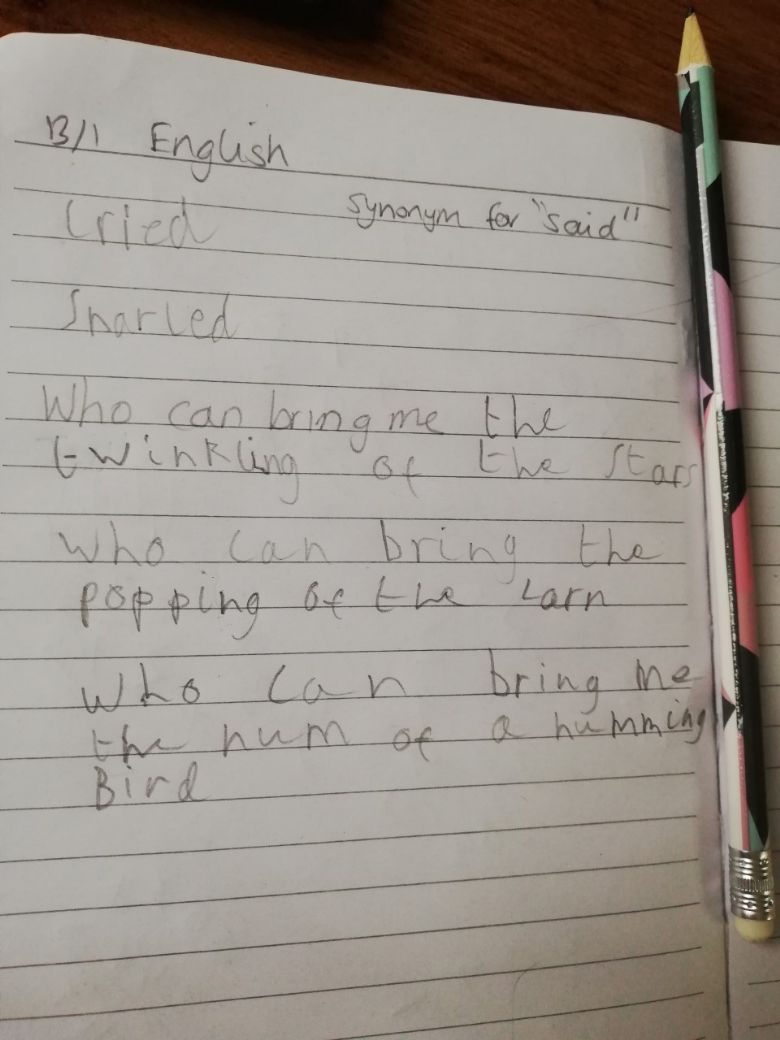 13/1 English
Cried synonym for "said"
Snarled
Who can bring me the
twinkling of the stars
Who can bring the
popping of the carn
Who can bring me
the hum of a humming
Bird